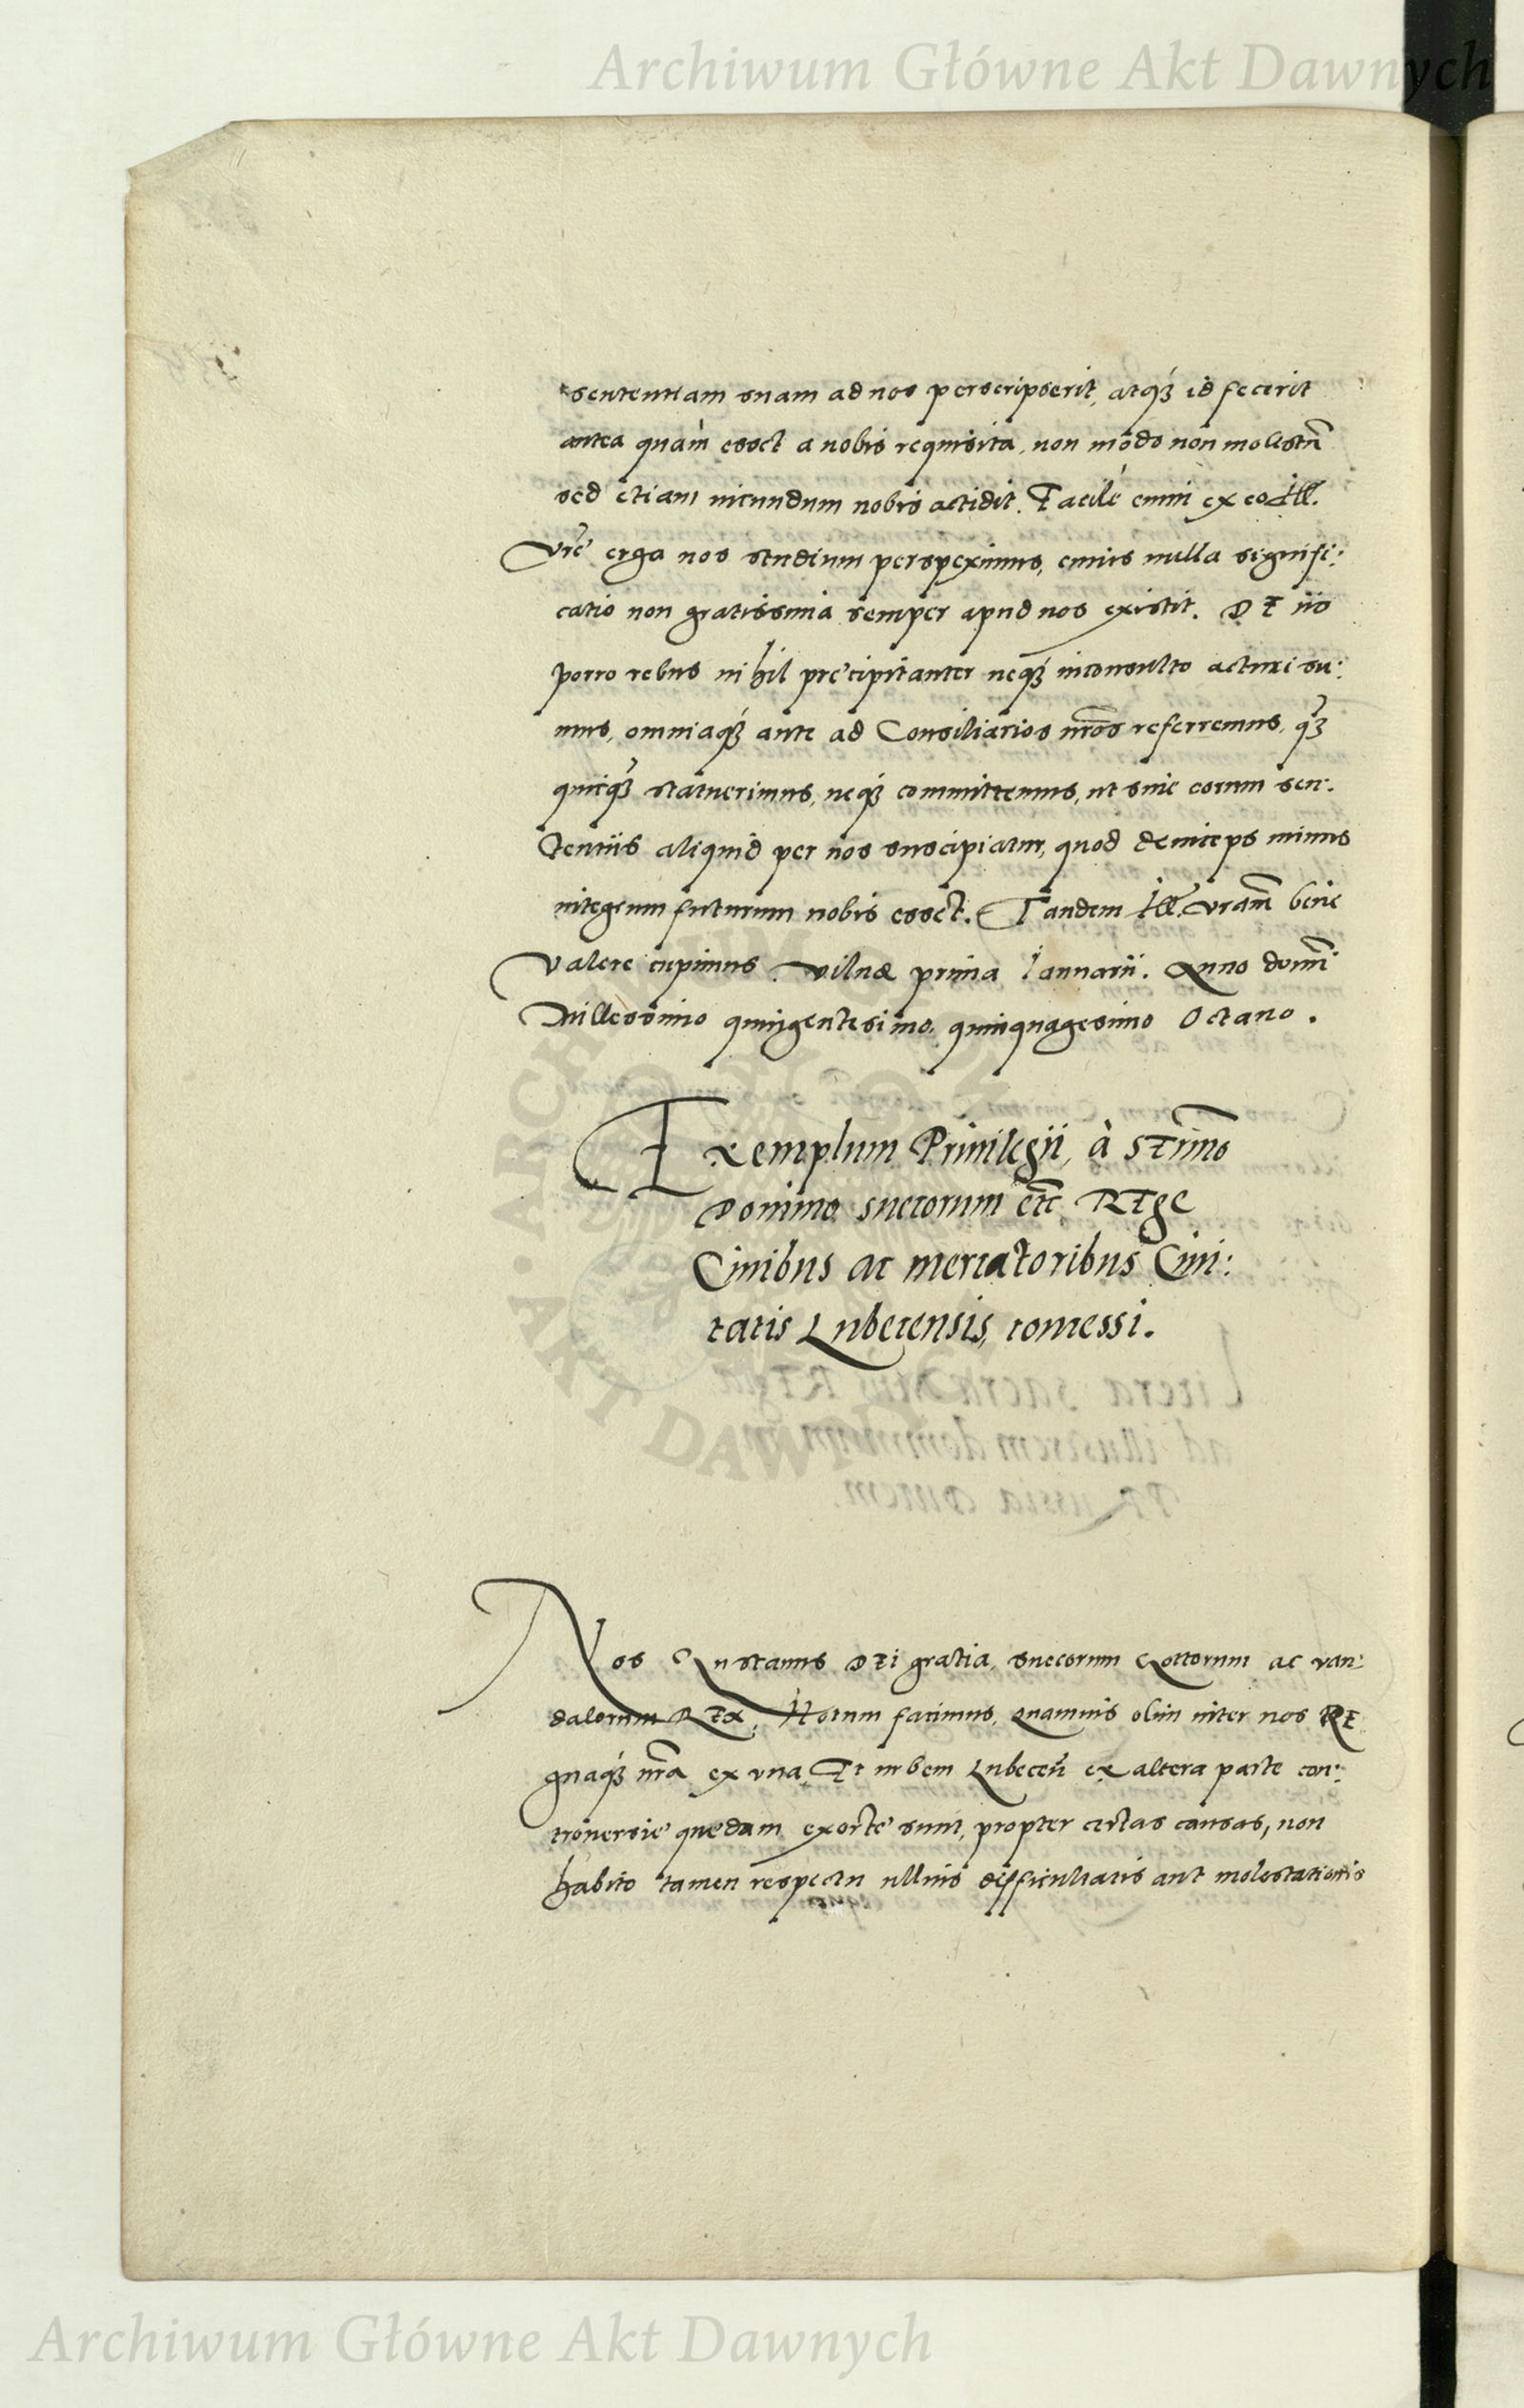 Archiwum Główne Akt Dawnych
sententiam suam ad nos perscripserit, atq́ꝫ id fecerit
antea quàm esset a nobis requisita, non modo non molestū
sed etiam iucundum nobis accidit. Facilè enim ex eo Ill.
Vrē erga nos studium perspeximus, cuius nulla signifi:
catio non gratissima semper apud nos existit. DE iis
porro rebus nihil precipitanter neq́ꝫ inconsulto acturi su:
mus, omniaq́ꝫ ante ad Consiliarios nr̄os referremus, q̃ꝫ
quicq̃ꝫ statuerimus, neq́ꝫ committemus, ut sine eorum sen:
tentiis aliquid per nos suscipiatur, quod deinceps minus
integrum futurum nobis esset. Tandem Ill. Vram̄ bene
Valere cupimus Vilnæ prima Ianuarii. Anno domī
Millessimo quingentesimo quinquagesimo Octauo.
Exemplum Priuilegii, à SERmo
Domino suecorum etc̄ REge
Ciuibus ac mercatoribus Ciui:
tatis Lubecensis, concessi.
Nos Gustauus DEi gratia, suecorum Gottorum ac van:
dalorum REx, Notum facimus, Quamuis olim inter nos RE
gnaq́ꝫ nr̄a ex vna, Et urbem Lubeceñ ex altera parte con:
trouersie quedam exorte sunt, propter certas causas, non
habito tamen respectu ullius difficultatis aut molestationis
ARCHIWUM GŁÓWNE AKT DAWNYCH
Archiwum Główne Akt Dawnych